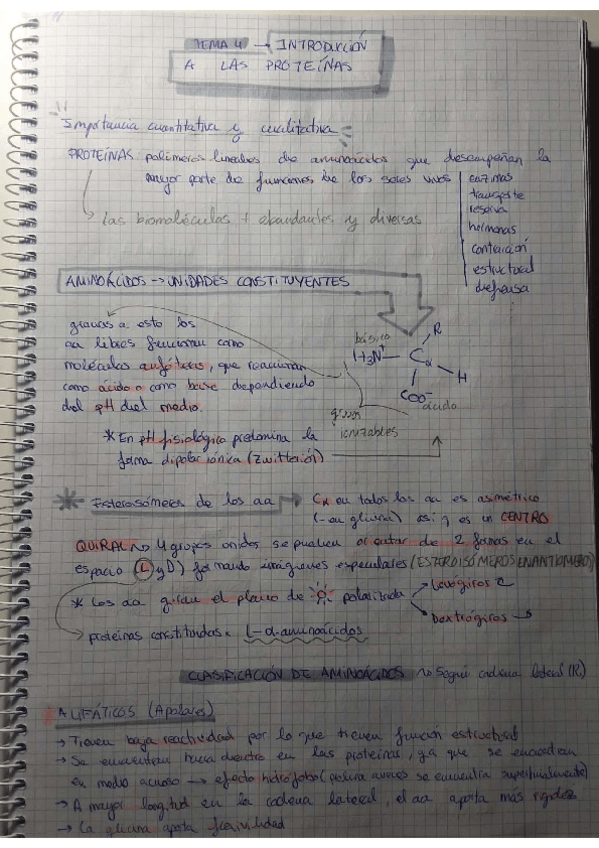 TEMA 4 → INTRODUCCIÓN
A LAS PROTEÍNAS
Importancia cuantitativa y cualitativa
PROTEÍNAS polímeros lineales de aminoácidos que desempeñan la
mayor parte de funciones de los seres vivos
enzimas
transporte
reserva
hormonas
contracción
estructural
defensa
↳ las biomoléculas + abundantes y diversas
AMINOÁCIDOS → UNIDADES CONSTITUYENTES
gracias a esto los
aa libres funcionan como
moléculas anfóteras, que reaccionan
como ácido o como base dependiendo
del pH del medio.
básico
R
H3N+ — Cα
H
COO-
ácido
grupos
ionizables
* En pH fisiológico predomina la
forma dipolar iónica (Zwitterión)
* Estereoisómeros de los aa → Cα en todos los aa es asimétrico
(- en glicina) así q es un CENTRO
QUIRAL ~> 4 grupos unidos se pueden orientar de 2 formas en el
espacio (L y D) formando imágenes especulares (ESTEROISÓMEROS ENANTIOMERO)
* Los aa giran el plano de polarizada
Levógiros
Dextrógiros
proteínas constituidas: L-α-aminoácidos
CLASIFICACIÓN DE AMINOÁCIDOS ~> Según cadena lateral (R)
* ALIFÁTICOS (Apolares)
→ Tienen baja reactividad por lo que tienen función estructural
→ Se encuentran hacia dentro en las proteínas, ya que se encuentran
en medio acuoso → efecto hidrófobo ( se encuentra superficialmente)
→ A mayor longitud en la cadena lateral, el aa aporta más rigidez
→ La glicina aporta flexividad